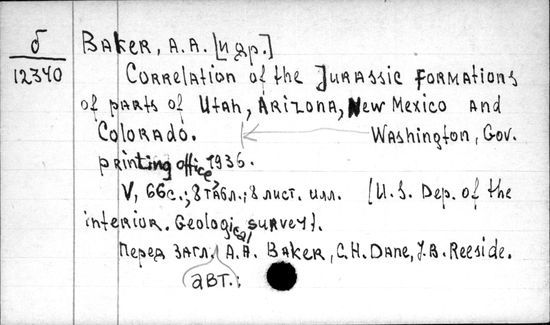 б
12340
Baker, A.A. [и др.]
Correlation of the Jurassic formations
of parts of Utah, Arizona, New Mexico and
Colorado. Washington, Gov.
printing office, 1936.
V, 66 с.; 8 табл.; 8 лист. илл. [U.S. Dep. of the
interior. Geological survey].
Перед загл. A.A. Baker, C.H. Dane, J.B. Reeside.
авт.: